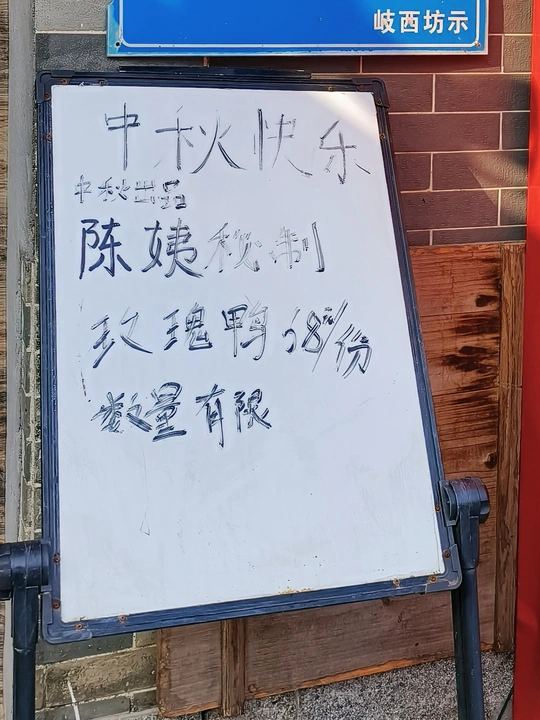 岐西坊示
中秋快乐
中秋出品
陈姨秘制
玫瑰鸭68元/份
数量有限